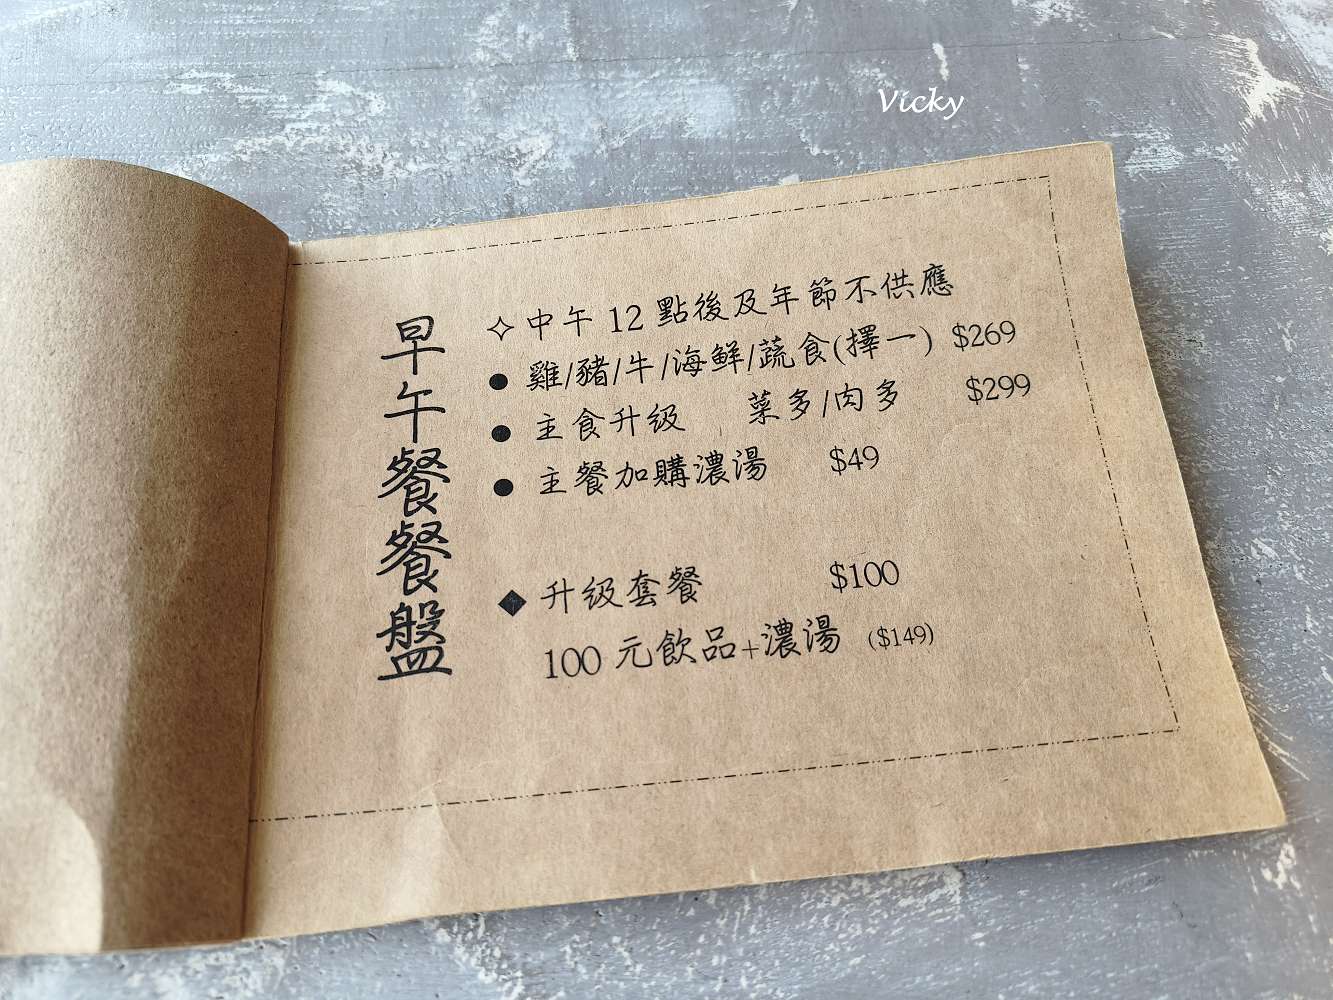 Vicky
早午餐餐盤
✧中午12點後及年節不供應
● 雞/豬/牛/海鮮/蔬食(擇一) $269
● 主食升級 菜多/肉多 $299
● 主餐加購濃湯 $49
◆ 升級套餐 $100
100元飲品+濃湯 ($149)